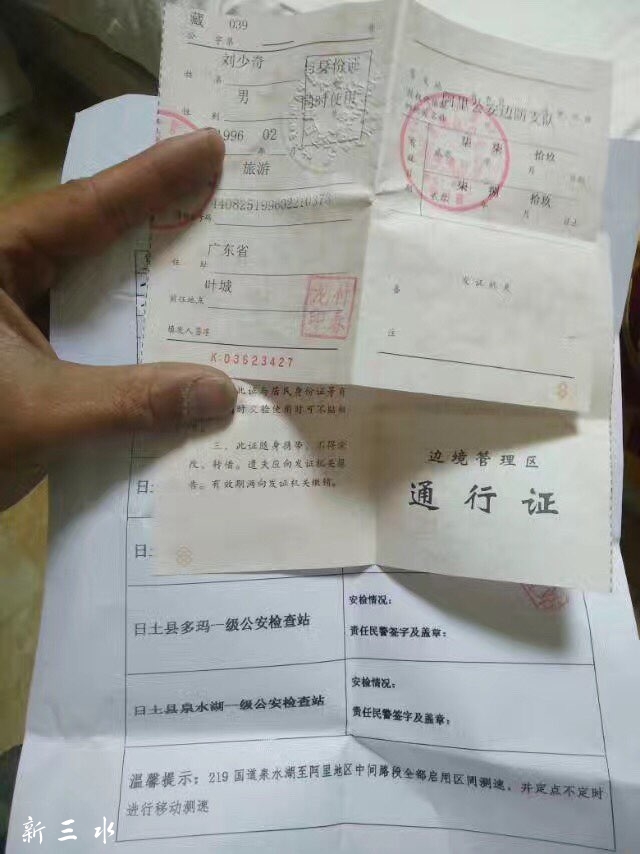 藏 039
公 字第 号
刘少奇
姓 名
与身份证
同时使用
男
性 别
1996 02
年
旅游
广东省
住 址
叶城
前往地点
填发人签字
K:03623427
阿里公安边防支队
柒 柒 拾玖
月 日
柒 捌 拾玖
月 日止
发证机关
备
注
此证与居民身份证等有
时交验使用时可不贴相
三、此证随身携带,不得涂
改、转借。遗失应向发证机关报
告。有效期满向发证机关缴销。
边境管理区
通行证
日土
日土
日土县多玛一级公安检查站
安检情况:
责任民警签字及盖章:
日土县泉水湖一级公安检查站
安检情况:
责任民警签字及盖章:
温馨提示:219国道泉水湖至阿里地区中间路段全部启用区间测速,并定点不定时
进行移动测速
新三水